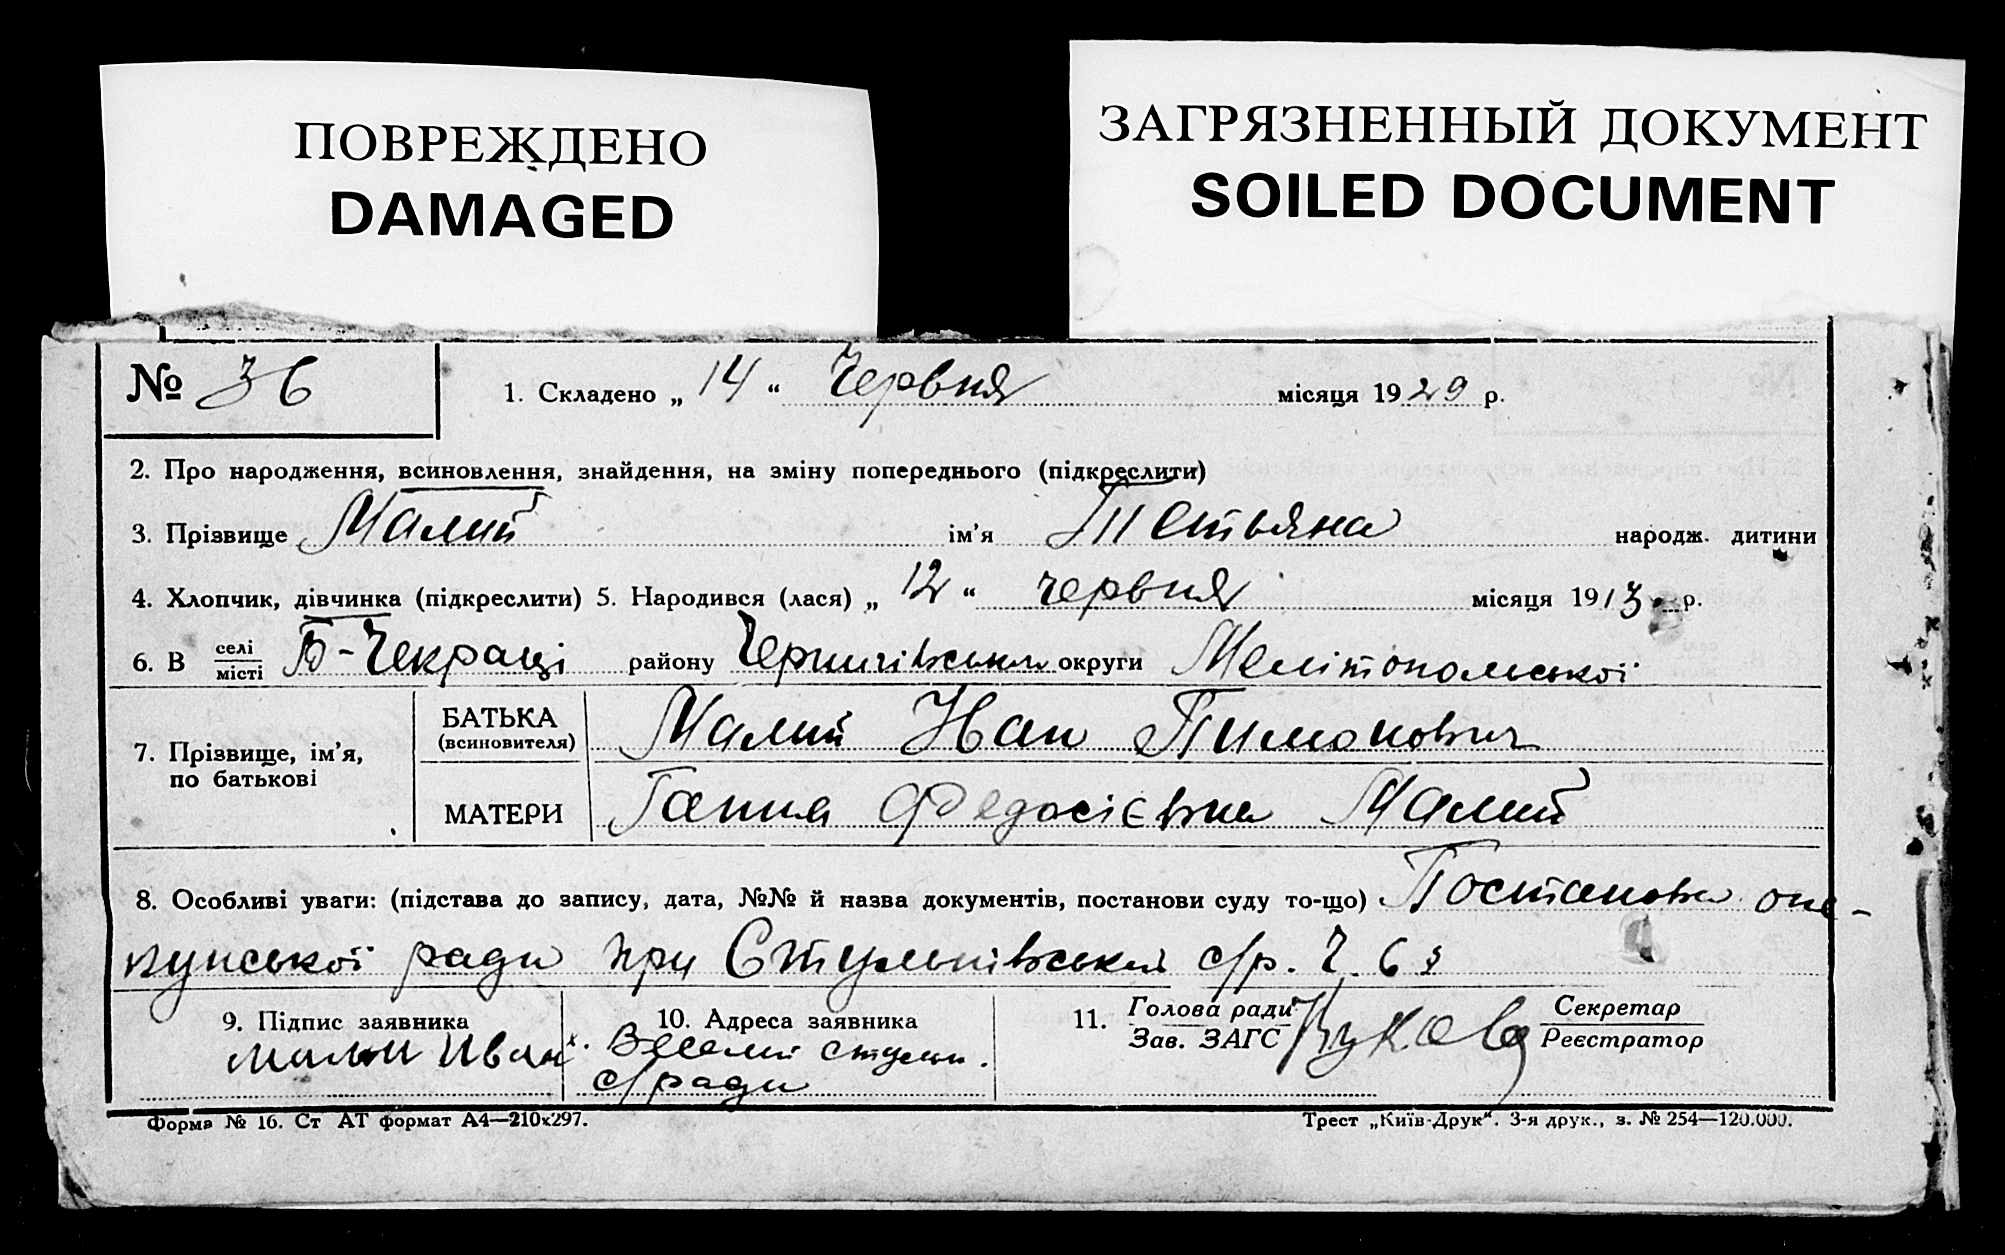 ПОВРЕЖДЕНО
DAMAGED
ЗАГРЯЗНЕННЫЙ ДОКУМЕНТ
SOILED DOCUMENT
№ 36
1. Складено „ 14 “ Червня місяця 1929 р.
2. Про народження, всиновлення, знайдення, на зміну попереднього (підкреслити)
3. Прізвище Малий ім'я Тетьяна народж. дитини
4. Хлопчик, дівчинка (підкреслити) 5. Народився (лася) „ 12 “ червня місяця 1913 р.
6. В селі місті Б-Чекраці району Чернигівськ округи Мелітопольської
7. Прізвище, ім'я, по батькові
БАТЬКА (всиновителя) Малий Иван Тимонович
МАТЕРИ Ганна Федосієвна Малий
8. Особливі уваги: (підстава до запису, дата, №№ й назва документів, постанови суду то-що) Постанова опе-
кунської ради при Стульнівській с/р. Ч. 6
9. Підпис заявника
Малий Иван
10. Адреса заявника
Веселий Стульн.
с/ради
11. Голова ради Зав. ЗАГС
Секретар Реєстратор
Форма № 16. Ст АТ формат А4—210х297.
Трест „Київ-Друк“. 3-я друк., з. № 254—120.000.